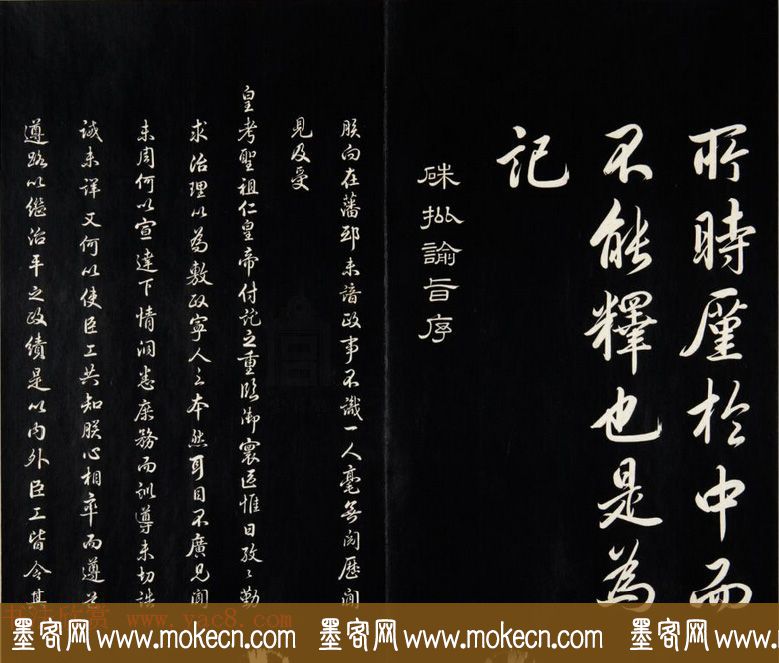 所時廑於中而
不能釋也是為
記
硃批諭旨序
朕向在藩邸未諳政事不識一人毫無閱歷聞
見及受
皇考聖祖仁皇帝付託之重臨御寰區惟日孜〻勤
求治理以為敷政寧人之本然耳目不廣見聞
未周何以宣達下情洞悉庶務而訓導未切誥
誠未詳又何以使臣工共知朕心相率而遵道
遵路以繼治平之政績是以內外臣工皆令其
书法欣赏 www.yac8.com
墨客网 www.mokecn.com 墨客网 www.mokecn.com